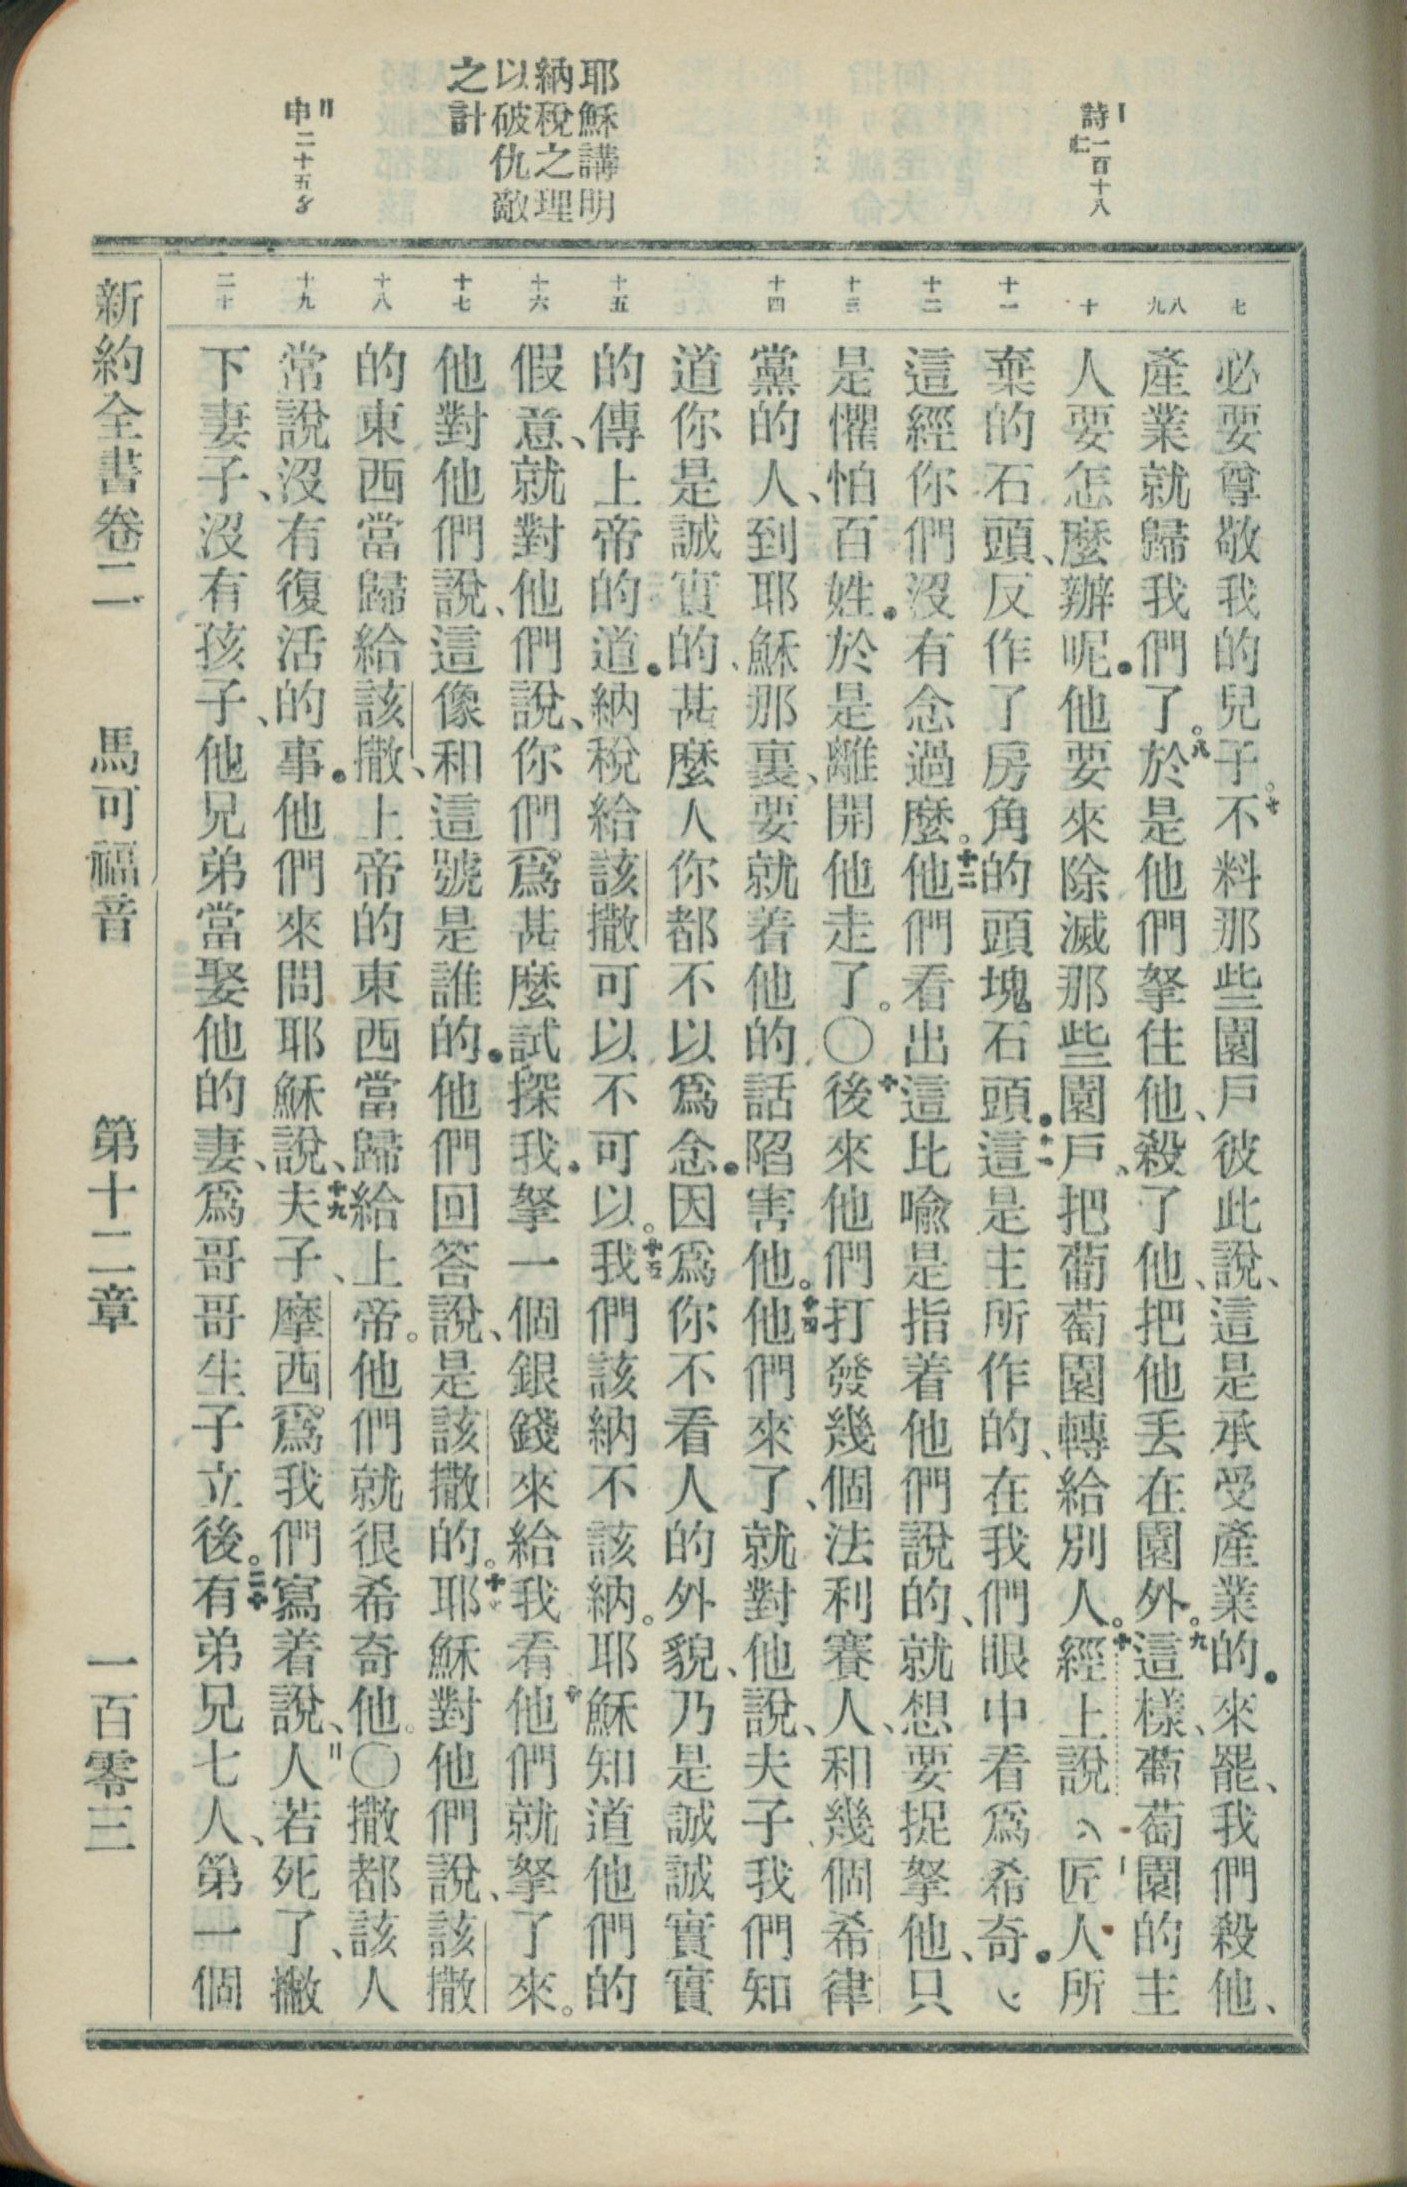 詩一百十八
耶穌講明
納稅之理
以破仇敵
之計
申二十五
七
八九
十
十一
十二
十三
十四
十五
十六
十七
十八
十九
二十
必要尊敬我的兒子。七不料那些園戶彼此說、這是承受產業的.來罷、我們殺他、
產業就歸我們了。八於是他們拏住他、殺了他、把他丢在園外。九這樣、葡萄園的主
人要怎麼辦呢.他要來除滅那些園戶、把葡萄園轉給別人。十經上說、匠人所
棄的石頭、反作了房角的頭塊石頭.十一這是主所作的、在我們眼中看爲希奇.
這經你們沒有念過麼。十二他們看出這比喻是指着他們說的、就想要捉拏他、只
是懼怕百姓.於是離開他走了。〇十三後來他們打發幾個法利賽人、和幾個希律
黨的人、到耶穌那裏、要就着他的話陷害他。十四他們來了、就對他說、夫子、我們知
道你是誠實的、甚麼人你都不以爲念.因爲你不看人的外貌、乃是誠誠實實
的傳上帝的道.納稅給該撒可以不可以。十五我們該納不該納。耶穌知道他們的
假意、就對他們說、你們爲甚麼試探我.拏一個銀錢來給我看。十六他們就拏了來。
他對他們說、這像和這號是誰的.他們回答說、是該撒的。十七耶穌對他們說、該撒
的東西當歸給該撒、上帝的東西當歸給上帝。他們就很希奇他。〇十八撒都該人
常說沒有復活的事.他們來問耶穌說、十九夫子、摩西爲我們寫着說、人若死了、撇
下妻子、沒有孩子、他兄弟當娶他的妻、爲哥哥生子立後。二十有弟兄七人、第一個
新約全書卷二 馬可福音 第十二章 一百零三